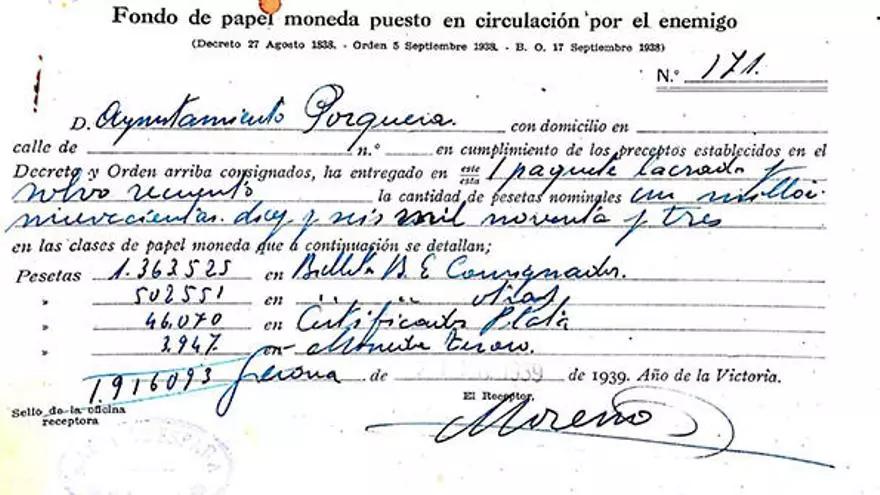 Fondo de papel moneda puesto en circulación por el enemigo
(Decreto 27 Agosto 1838. - Orden 5 Septiembre 1938. - B. O. 17 Septiembre 1938)
N.º 171.
D. Ayuntamiento Porquera. con domicilio en
calle de n.º en cumplimiento de los preceptos establecidos en el
Decreto y Orden arriba consignados, ha entregado en este esta 1 paquete lacrado y
salvo recuento la cantidad de pesetas nominales un millon
nuevecientas diez y seis mil noventa y tres
en las clases de papel moneda que a continuación se detallan;
Pesetas 1.363525 en Billete B. E Consignados.
» 502551 en " " otras
» 46.070 en Certificados Plata
» 3.947 en Moneda tesoro.
1.916093 Gerona de 1939 de 1939. Año de la Victoria.
Sello de la oficina receptora
El Receptor,
Moreno
ESPAÑA